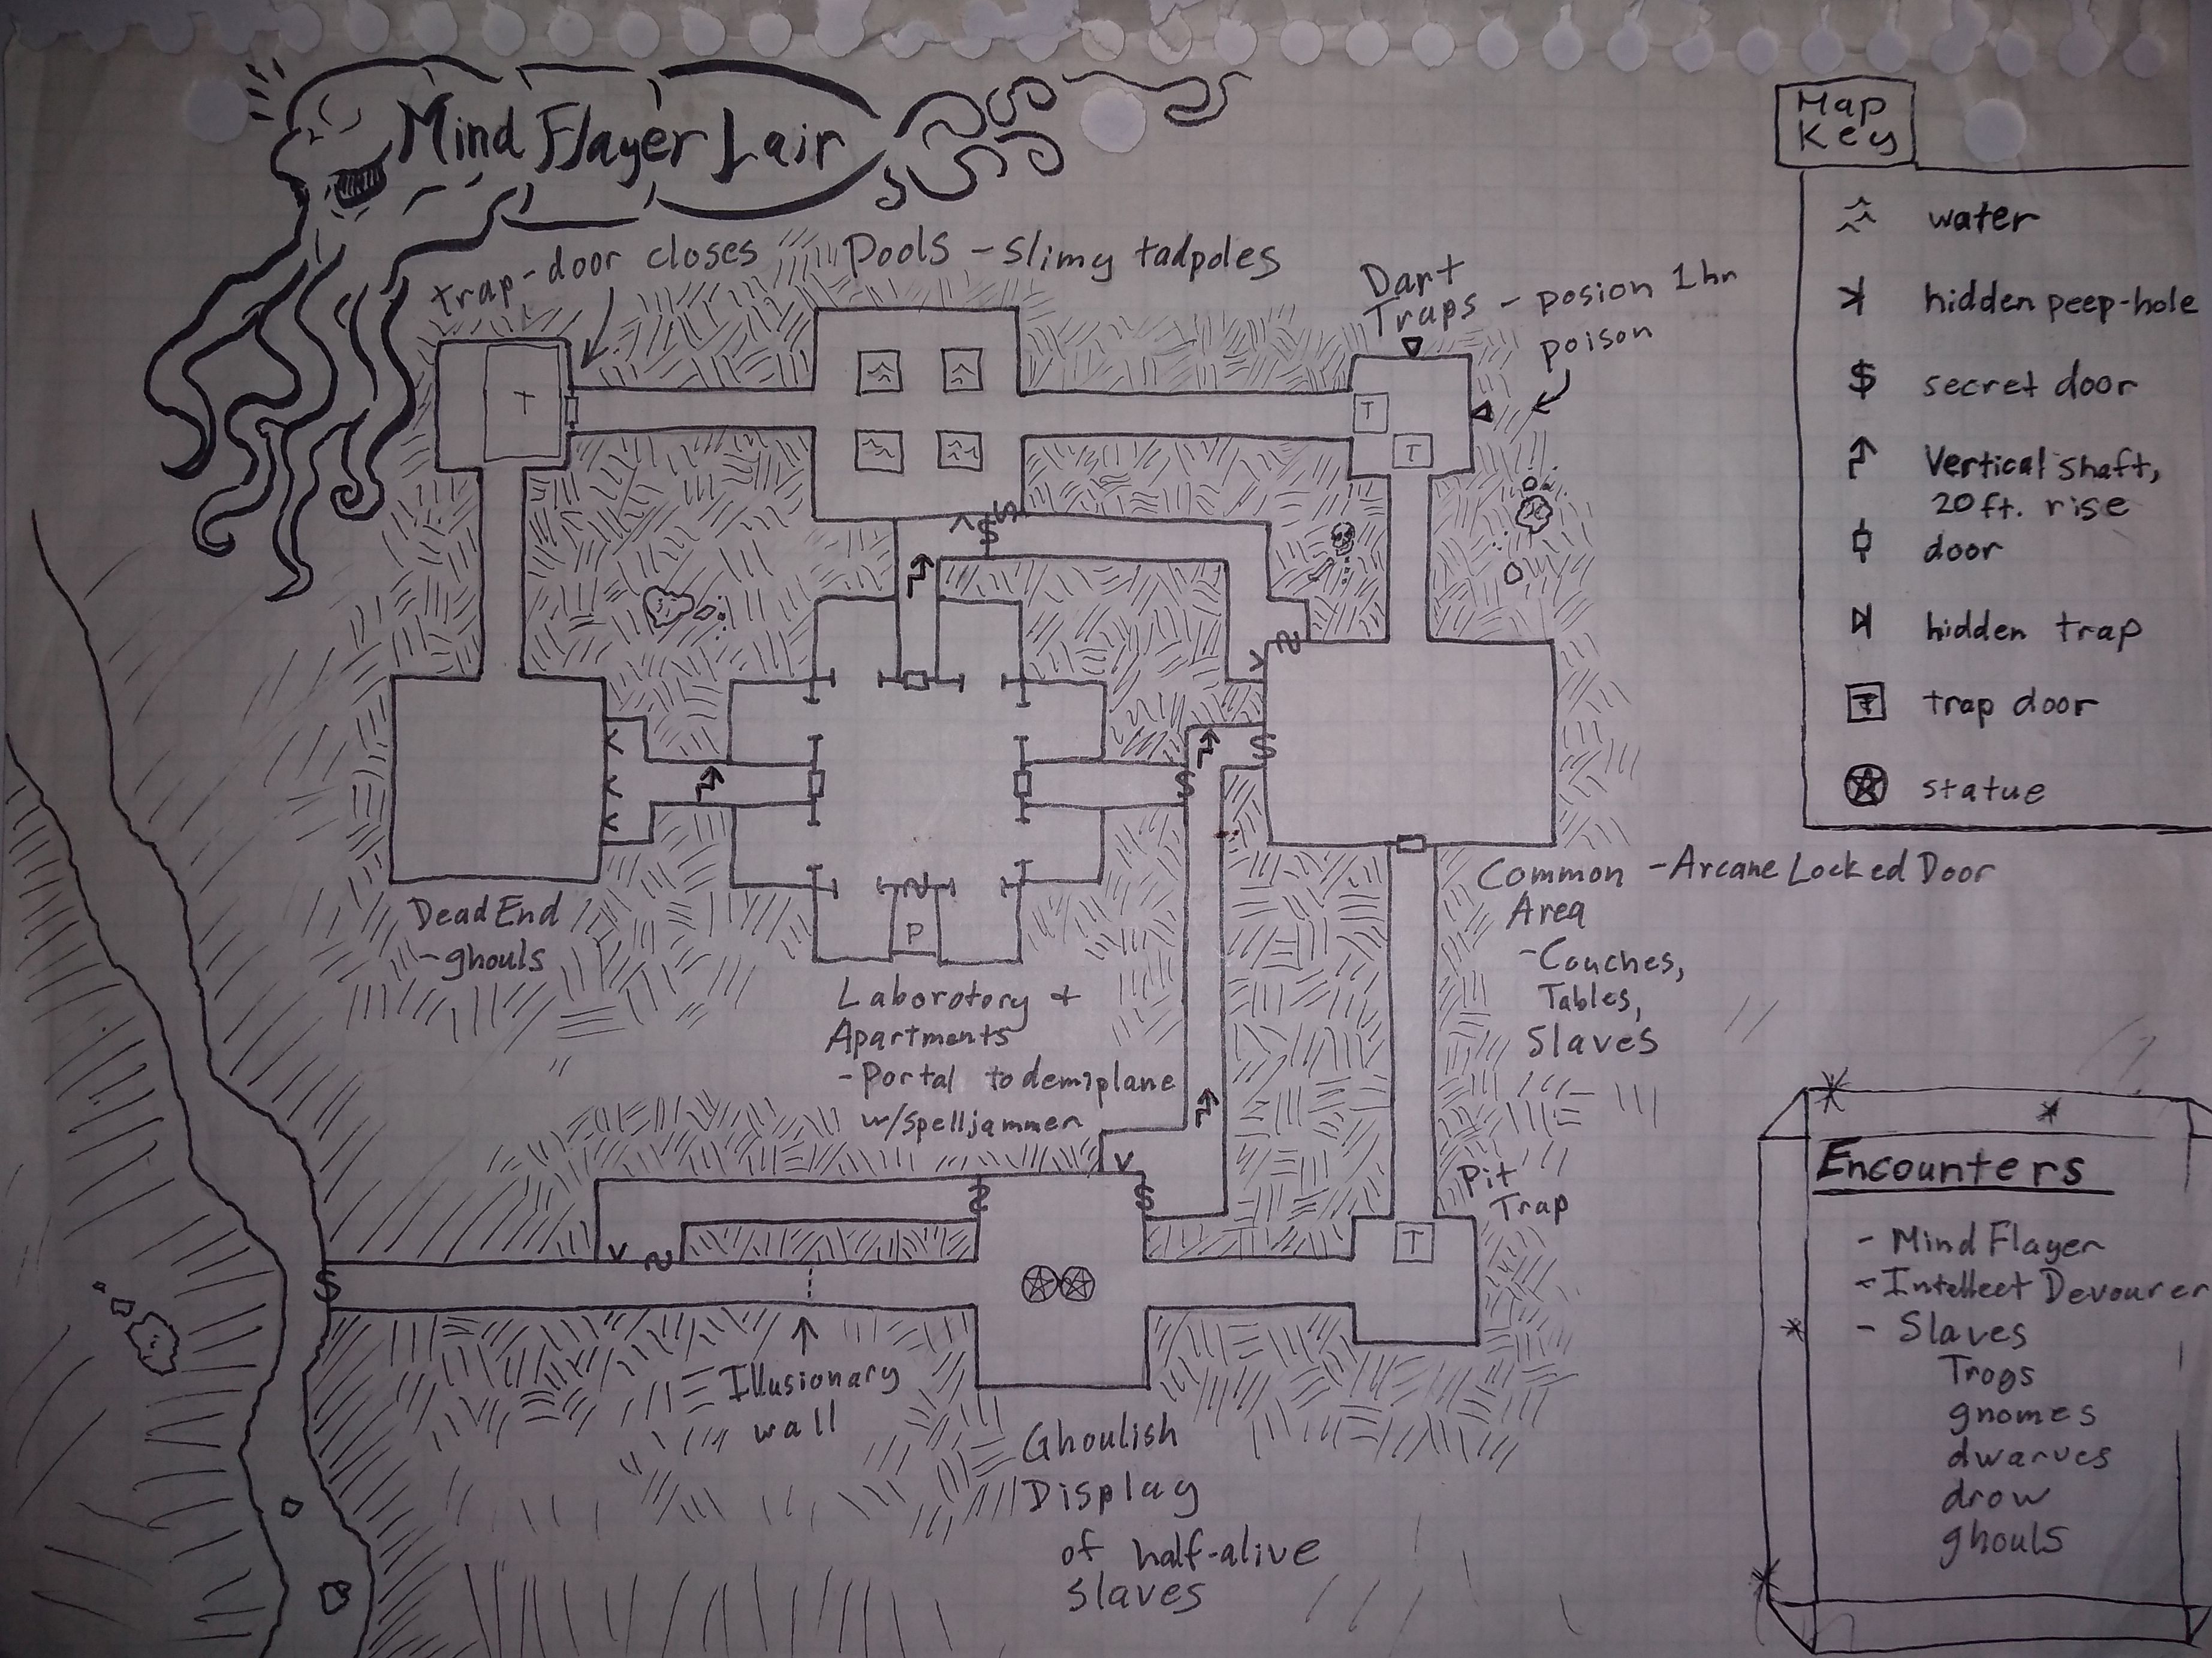 Mind Flayer Lair
trap-door closes
Pools - Slimy tadpoles
Dart
Traps - posion 1hr
poison
T
T
T
Dead End
- ghouls
P
Laborotory +
Apartments
- Portal to demiplane
w/spelljammer
Common - Arcane Locked Door
Area
- Couches,
Tables,
Slaves
Pit
Trap
T
Illusionary
wall
Ghoulish
Display
of half-alive
slaves
Map
Key
water
hidden peep-hole
$ secret door
Vertical shaft,
20ft. rise
door
hidden trap
T trap door
statue
Encounters
- Mind Flayer
- Intellect Devourer
- Slaves
Trogs
gnomes
dwarves
drow
ghouls